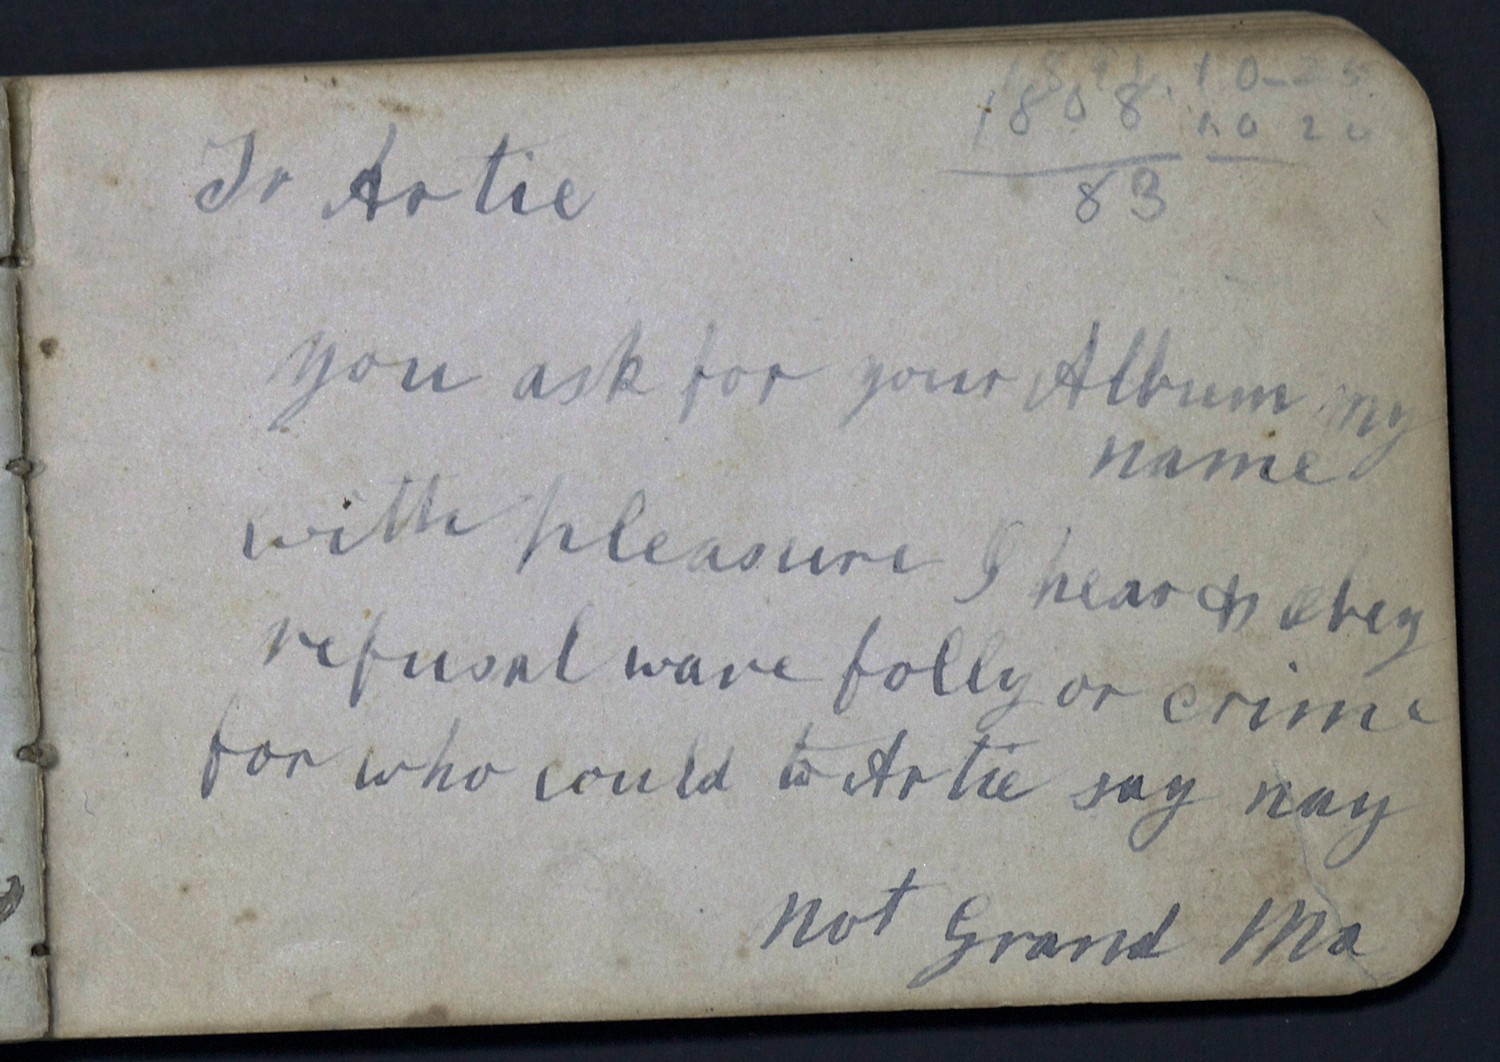 1891. 10-25.
1808 10 20
83
To Artie
you ask for your Album my
name
with pleasure I hear & obey
refusal ware folly or crime
for who could to Artie say nay
not Grand Ma